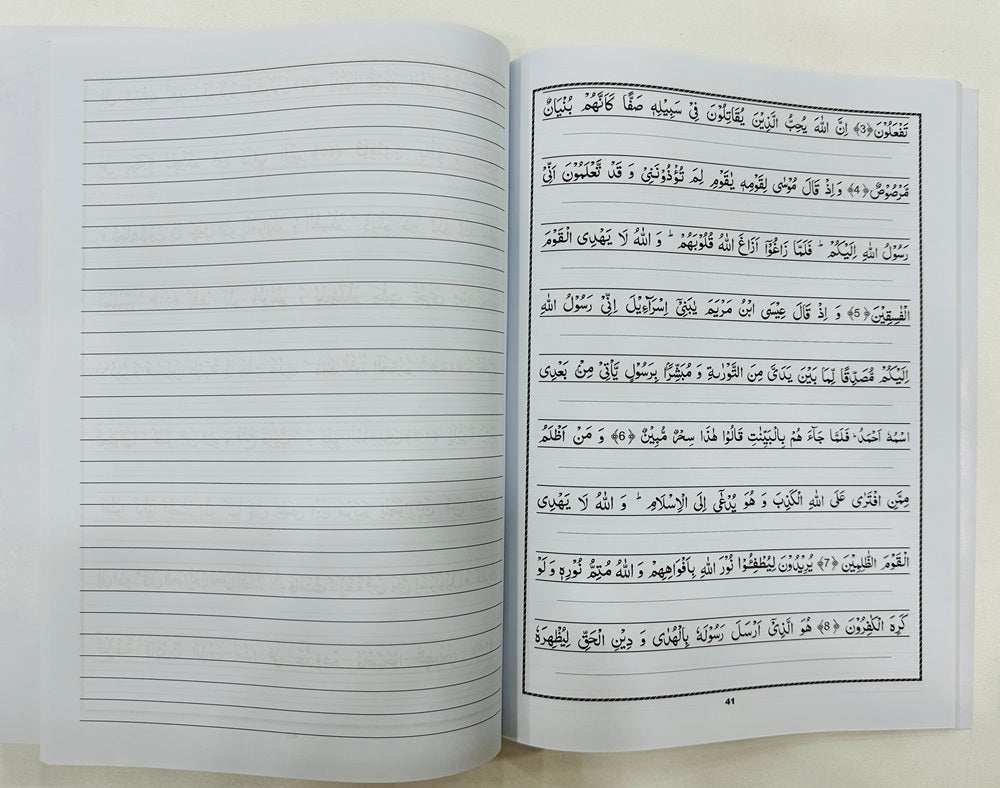 تَفْعَلُوْنَ﴿3﴾ اِنَّ اللّٰهَ يُحِبُّ الَّذِيْنَ يُقَاتِلُوْنَ فِيْ سَبِيْلِهٖ صَفًّا كَاَنَّهُمْ بُنْيَانٌ
مَّرْصُوْصٌ﴿4﴾ وَاِذْ قَالَ مُوْسٰى لِقَوْمِهٖ يٰقَوْمِ لِمَ تُؤْذُوْنَنِيْ وَ قَدْ تَّعْلَمُوْنَ اَنِّيْ
رَسُوْلُ اللّٰهِ اِلَيْكُمْ ؕ فَلَمَّا زَاغُوْۤا اَزَاغَ اللّٰهُ قُلُوْبَهُمْ ؕ وَ اللّٰهُ لَا يَهْدِى الْقَوْمَ
الْفٰسِقِيْنَ﴿5﴾ وَ اِذْ قَالَ عِيْسَى ابْنُ مَرْيَمَ يٰبَنِيْۤ اِسْرَآءِيْلَ اِنِّيْ رَسُوْلُ اللّٰهِ
اِلَيْكُمْ مُّصَدِّقًا لِّمَا بَيْنَ يَدَيَّ مِنَ التَّوْرٰىةِ وَ مُبَشِّرًۢا بِرَسُوْلٍ يَّاْتِيْ مِنْۢ بَعْدِى
اسْمُهٗۤ اَحْمَدُ ؕ فَلَمَّا جَآءَ هُمْ بِالْبَيِّنٰتِ قَالُوْا هٰذَا سِحْرٌ مُّبِيْنٌ ﴿6﴾ وَ مَنْ اَظْلَمُ
مِمَّنِ افْتَرٰى عَلَى اللّٰهِ الْكَذِبَ وَ هُوَ يُدْعٰۤى اِلَى الْاِسْلَامِ ؕ وَ اللّٰهُ لَا يَهْدِى
الْقَوْمَ الظّٰلِمِيْنَ ﴿7﴾ يُرِيْدُوْنَ لِيُطْفِـُٔوْا نُوْرَ اللّٰهِ بِاَفْوَاهِهِمْ وَ اللّٰهُ مُتِمُّ نُوْرِهٖ وَ لَوْ
كَرِهَ الْكٰفِرُوْنَ ﴿8﴾ هُوَ الَّذِيْۤ اَرْسَلَ رَسُوْلَهٗ بِالْهُدٰى وَ دِيْنِ الْحَقِّ لِيُظْهِرَهٗ
41